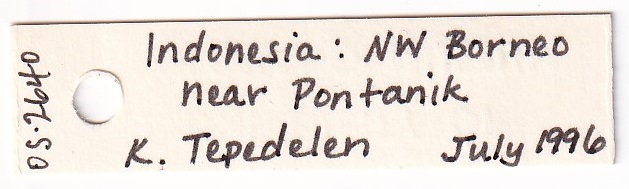 Indonesia: NW Borneo
near Pontanik
K. Tepedelen July 1996
OS.2640